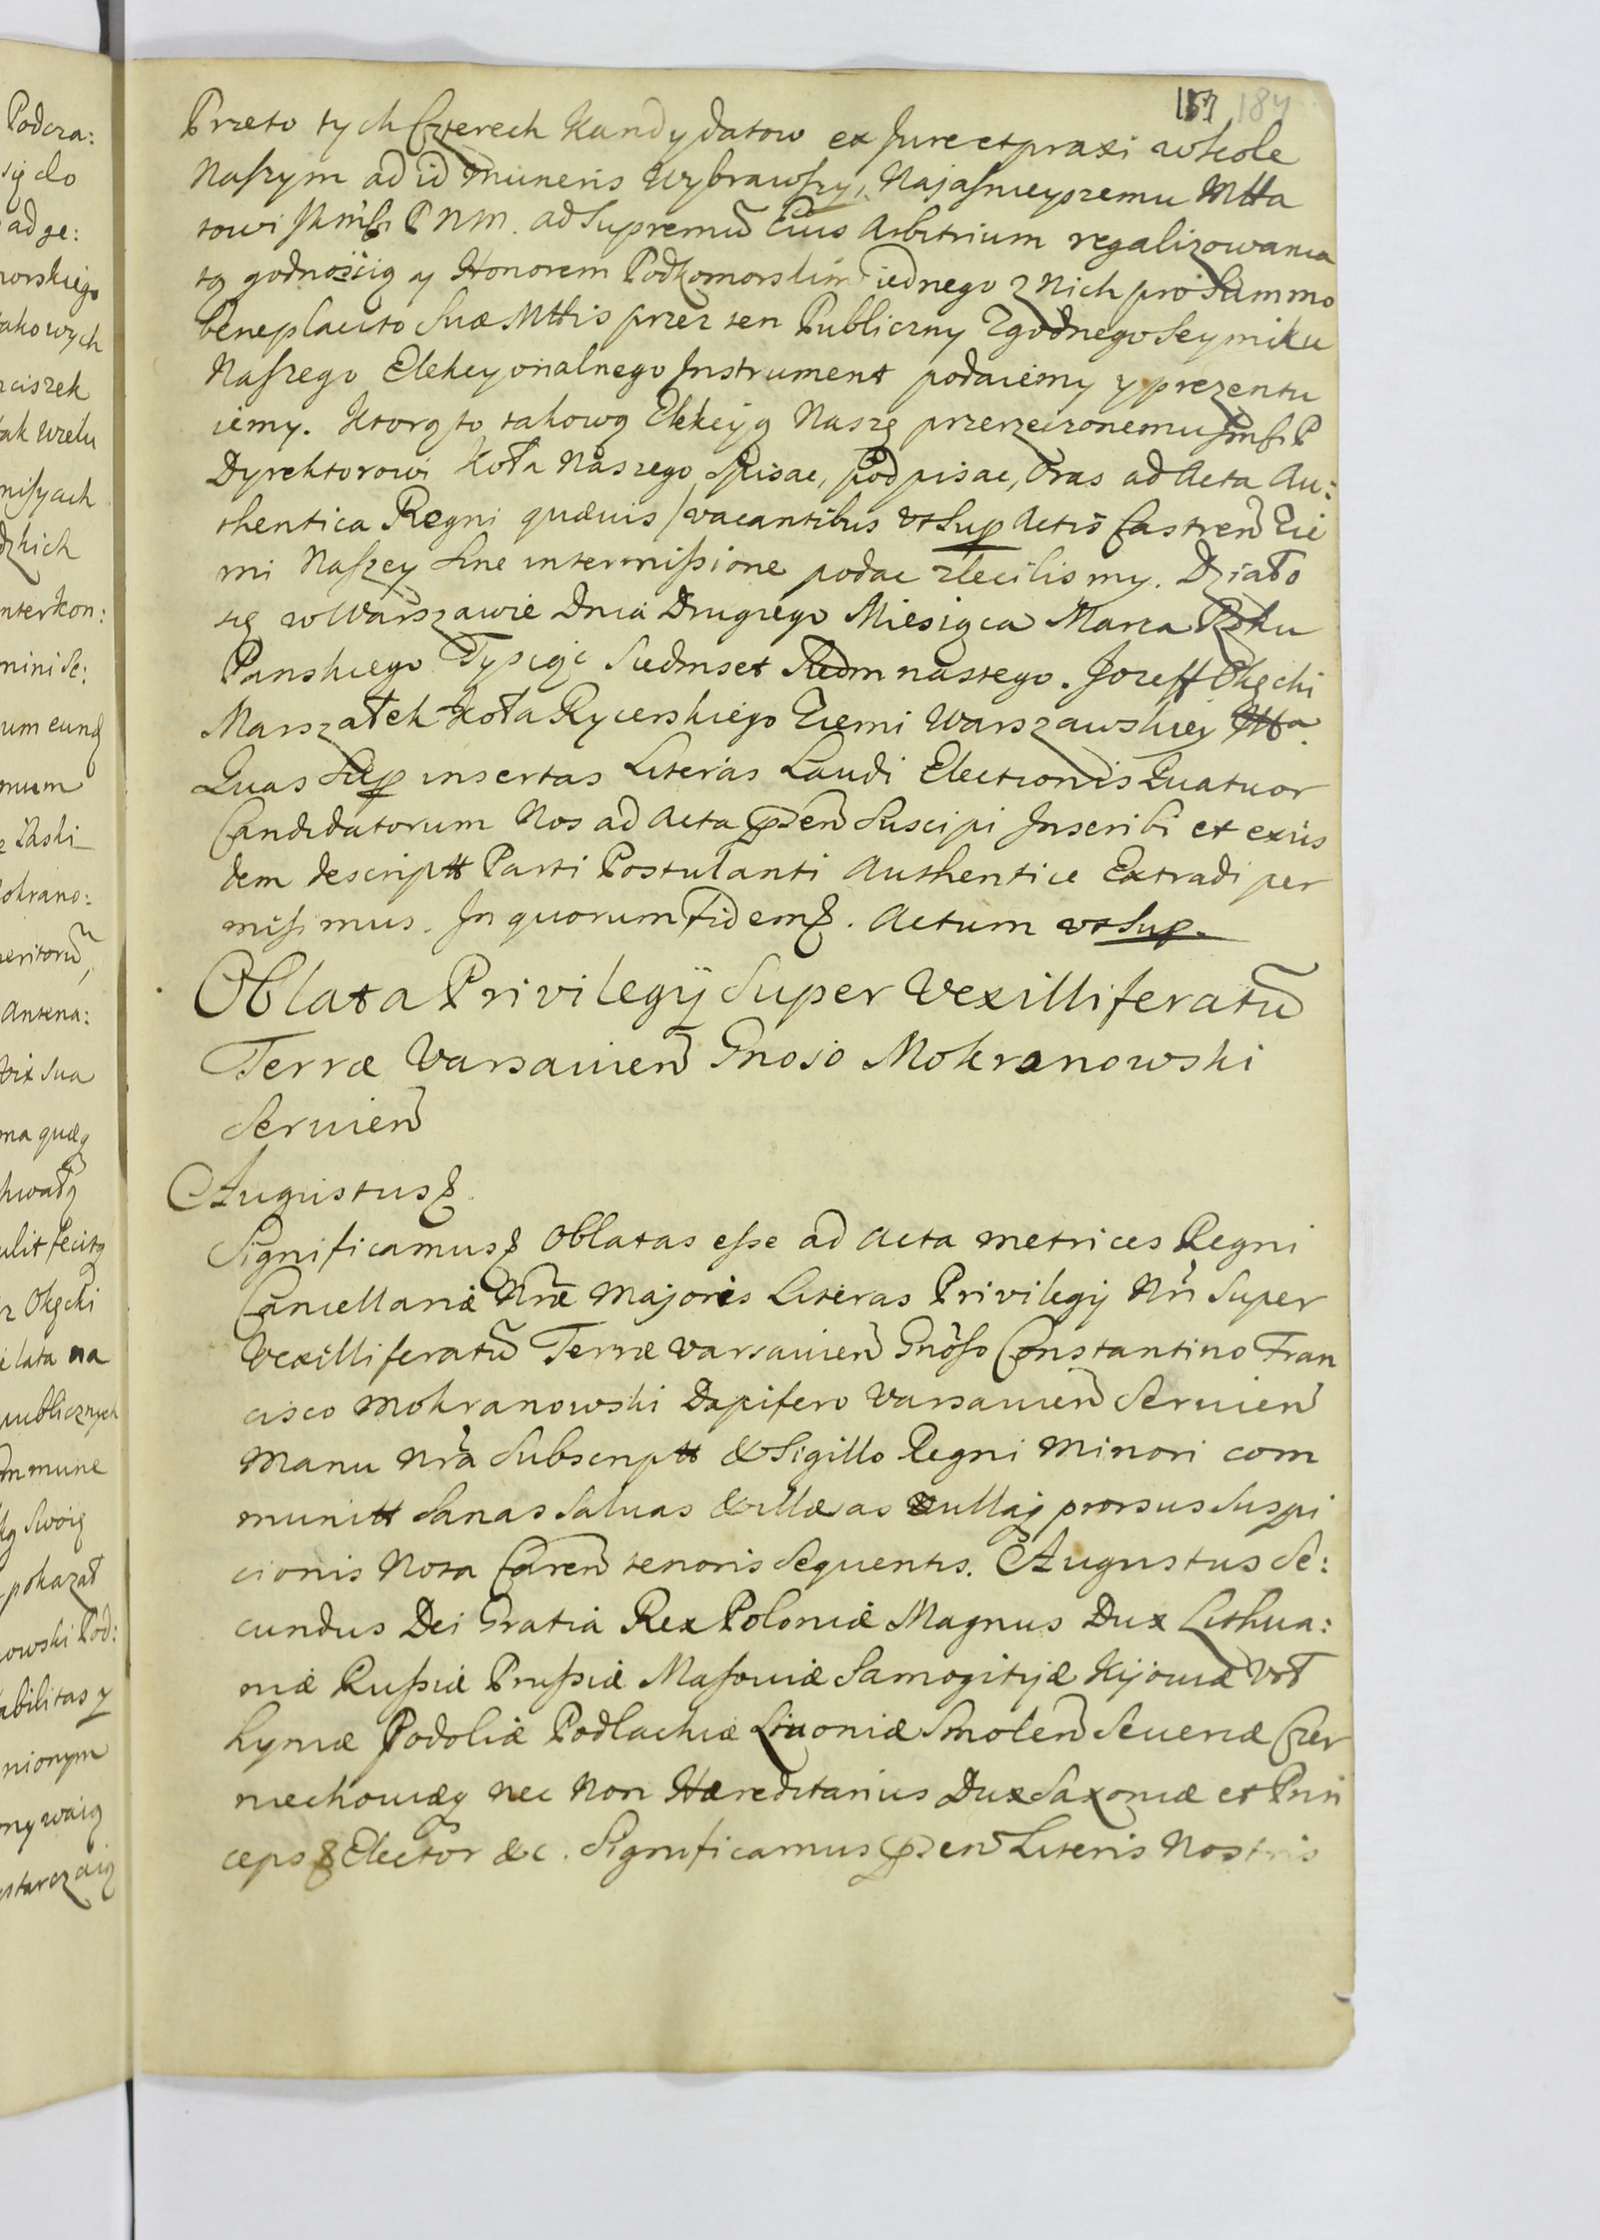 Podcza:
się do
ad ge:
morskiego
takowych
nciszek
ak wielu
missyach
dzkich
nter kon:
mini Se:
um eunq
mum
okrano:
eritorũ,
Antena:
vix sua
ma quæq
hwałą
ulit fecitq
z Okęcki
elata na
publicznych
mmune
Swoię
pokazał
owski Pod:
abilitas y
nionym
ny waią
starczaią
157 184
Przeto tych Czterech Kandydatow ex Jure et praxi w kole
Naszym ad id muneris Wybrawszy, Najaśnieyszemu Mtta
towi JKmści P N M. ad Supremũ Eius Arbitrium regalizowania
tą godnością y Honorem Podkomorskim iednego z Nich pro Summo
beneplacito Suæ Mttis przez ten Publiczny Zgodnego Seymiku
Naszego Elekcyonalnego Instrument podaiemy y prezentu
iemy. Ktorą to takową Elekcyą Naszę przerzeczonemu Jmści P
Dyrektorowi Koła Naszego Spisac, podpisac, Oraz ad Acta Au:
thentica Regni quævis / vacantibus vt Sup Actis Castreñ Zie
mi Naszey Sine intermissione podac zlecilismy. Działo
się w Warszawie Dnia Drugiego Miesiąca Marca Roku
Panskiego Tysiąc Siedmset Siedmnastego. Jozeff Okęcki
Marszałek Koła Rycerskiego Ziemi Warszawskiey
Quas Sup insertas Literas Laudi Electionis Quatuor
Candidatorum Nos ad Acta pñsen Suscipi Inscribi et exiis
dem descriptt Parti Postulanti Authentice Extradi per
misimus. In quorum Fidem &. Actum vt Sup.
Oblata Privilegÿ Super Vexilliferatũ
Terræ Varsavieñ Gnoso Mokranowski
Servieñ
Augustus &.
Significamus & Oblatas esse ad Acta metrices Regni
Cancellariæ Nræ Majoris Literas Privilegij Nri Super
Vexilliferatũ Terræ Varsavieñ Gnoso Constantino Fran
cisco Mokranowski Dapifero Varsavieñ Servieñ
Manu Nra Subscriptt & Sigillo Regni Minori com
munitt Sanas Salvas & illæsas nullaq prorsus Suspi
cionis Nota Careñ tenoris Sequentis. Augustus Se:
cundus Dei Gratia Rex Poloniæ Magnus Dux Lithua:
niæ Russiæ Prussiæ Masoviæ Samogitijæ Kijoviæ Vol
hyniæ Podoliæ Podlachiæ Livoniæ Smoleñ Severiæ Czer
niechoviæq nec Non Hæreditarius Dux Saxoniæ et Prin
ceps & Elector &c. Significamus pñseñ Literis Nostris